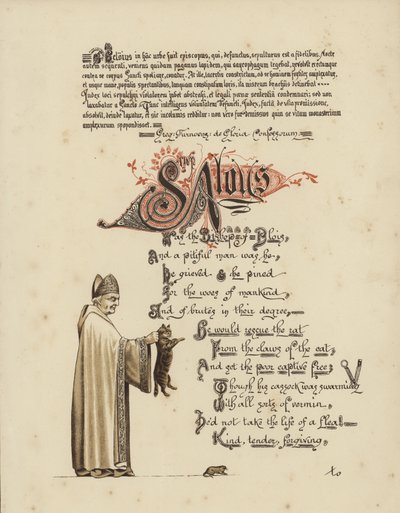 Heloïus in hâc urbe fuit episcopus, qui, defunctus, sepulturus est a fidelibus. Nocte
autem sequenti, veniens quidam paganus lapidem, qui sarcophagum tegebat, revolvit erectumque
contra se corpus Sancti spoliare conatur. At ille, lacertis constrictum, ad se hominem fortiter amplexatur,
et usque mane, populis spectantibus, tanquam constipatum loris, ita miserum brachiis detinebat
Judex loci sepulchri violatorem jubet abstrahi, et legali pœnæ sententiâ condemnari: sed non
laxabatur a Sancto. Tunc intelligens voluntatem defuncti, Judex, factâ de vitâ promissione,
absolvit, deinde laxatur, et sic incolumis redditur: non vero fur demissus quin se vitam monasterium
amplexurum spopondisset.
Greg. Turonens: de Gloria Confessorum.
Saint
Aloÿs
Was the Bishop of Blois,
And a pitiful man was he,
He grieved & he pined
For the woes of mankind,
And of brutes in their degree,
He would rescue the rat
From the claws of the cat,
And set the poor captive free;
Though his cassock was swarming
With all sorts of vermin,
He'd not take the life of a flea!
Kind, tender, forgiving,
to